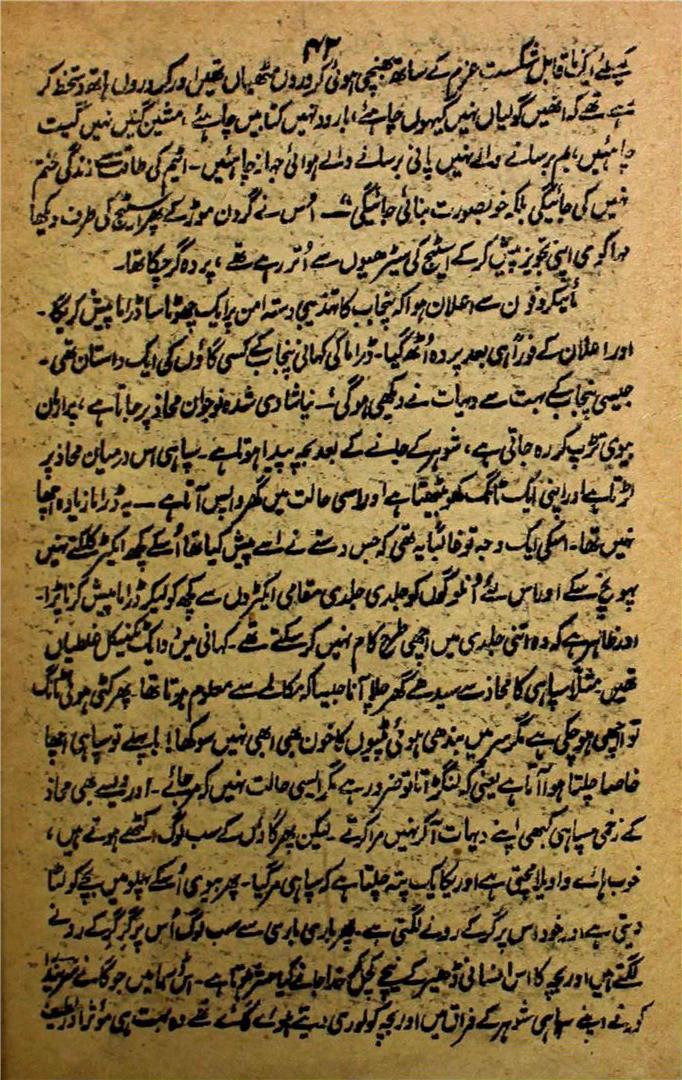 ۴۲
کے لئے ایک ناقابل شکست عزم کے ساتھ بھنچی ہوئی کروروں مٹھیاں تھیں اور کروروں ہاتھ دستخط کر
رہے تھے کہ انھیں گولیاں نہیں گیہوں چاہئے، بارود نہیں کتابیں چاہئے، مشین گنیں نہیں گیت
چاہئیں، بم برسانے والے نہیں پانی برسانے والے ہوائی جہاز چاہئیں۔ ایٹم کی طاقت سے زندگی ختم
نہیں کی جائیگی بلکہ خوبصورت بنائی جائیگی"۔ اُس نے گردن موڑ کے پھر اسٹیج کی طرف دیکھا
مہا گومی اپنی تجویز پیش کر کے اسٹیج کی سیڑھیوں سے اُتر رہے تھے، پردہ گر چکا تھا۔
مائیکروفون سے اعلان ہوا کہ پنجاب کا تہذیبی دستہ امن پر ایک چھوٹا سا ڈراما پیش کریگا۔
اور اعلان کے فوراً ہی بعد پردہ اُٹھ گیا۔ ڈراما کی کہانی پنجاب کے کسی گاؤں کی ایک داستان تھی۔
جیسی پنجاب کے بہت سے دیہات نے دیکھی ہوگی۔ نیا شادی شدہ نوجوان محاذ پر جاتا ہے،
بیوی تڑپ کر رہ جاتی ہے، شوہر کے جانے کے بعد بچہ پیدا ہوتا ہے۔ سپاہی اس درمیان محاذ پر
لڑتا ہے اور اپنی ایک ٹانگ کھو بیٹھتا ہے اور اسی حالت میں گھر واپس آتا ہے — یہ ڈراما زیادہ اچھا
نہیں تھا۔ اسکی ایک وجہ تو غالباً یہ تھی کہ جس دستے نے اسے پیش کیا تھا اُسکے کچھ ایکٹر کلکتے نہیں
پہونچ سکے اور اس لئے اُن لوگوں کو جلدی جلدی مقامی ایکٹروں سے کچھ کو لیکر ڈراما پیش کرنا پڑا۔
اور ظاہر ہے کہ وہ اتنی جلدی میں اچھی طرح کام نہیں کر سکتے تھے۔ کہانی میں دو ایک ٹکنیکل غلطیاں
تھیں مثلاً سپاہی کا محاذ سے سیدھے گھر چلا آنا جیسا کہ مکالمے سے معلوم ہوتا تھا۔ پھر کٹی ہوئی ٹانگ
تو اچھی ہو چکی ہے مگر سر میں بندھی ہوئی پٹیوں کا خون بھی ابھی نہیں سوکھا! پہلے تو سپاہی اچھا
خاصا چلتا ہوا آتا ہے یعنی کہ لنگڑاتا تو ضرور ہے مگر ایسی حالت نہیں کہ مر جائے۔ اور ویسے بھی محاذ
کے زخمی سپاہی کبھی اپنے دیہات آ کر نہیں مرا کرتے۔ لیکن پھر گاؤں کے سب لوگ اکٹھے ہوتے ہیں،
خوب ہائے واویلا مچتی ہے اور یکایک پتہ چلتا ہے کہ سپاہی مر گیا۔ پھر بیوی اُسکے پہلو میں بچے کو لٹا
دیتی ہے اور خود اس پر گر کے رونے لگتی ہے۔ پھر باری باری سے سب لوگ اُس پر گر گر کے رونے
لگتے ہیں اور بچہ کا اس انسانی ڈھیر کے نیچے کچل کر خدا جانے کیا حشر ہوتا ہے۔ اس ڈراما میں جو گانے
کور نے اپنے سپاہی شوہر کے فراق میں اور بچہ کو لوری دیتے ہوئے گائے تھے وہ بہت ہی مؤثر اور لطیف